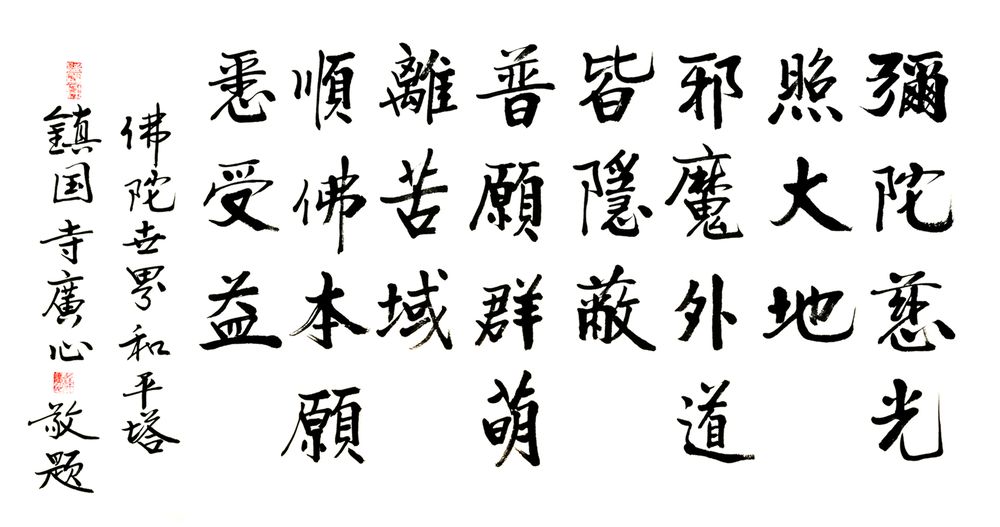 彌陀慈光
照大地
邪魔外道
皆隱蔽
普願群萌
離苦域
順佛本願
悉受益
佛陀世界和平塔
鎮国寺廣心敬題